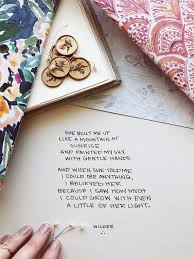 SHE BUILT ME UP
LIKE A MOUNTAIN AT
SUNRISE
AND PAINTED MY SKY
WITH GENTLE HANDS.
AND WHEN SHE TOLD ME
I COULD BE ANYTHING,
I BELIEVED HER
BECAUSE I SAW HOW MUCH
I COULD GROW WITH EVEN
A LITTLE OF HER LIGHT.
WILDER